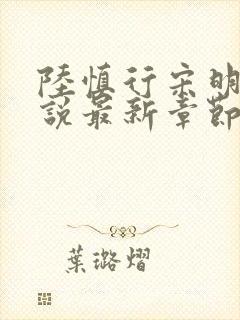 陸慎行宋明
說最新章節
葉璐熠